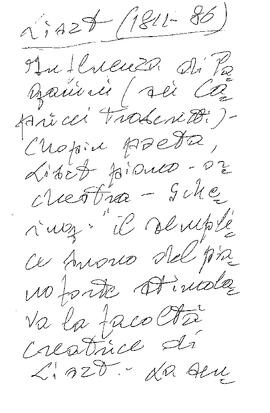 Liszt (1811-86)
Influenza di Pa=
ganini (sei Ca=
pricci trascritti)-
Chopin poeta,
Liszt piano-or=
chestra -
inoz: "il sempli=
ce suono del pia=
noforte stimola=
va la facoltà
creatrice di
Liszt.- La sen=